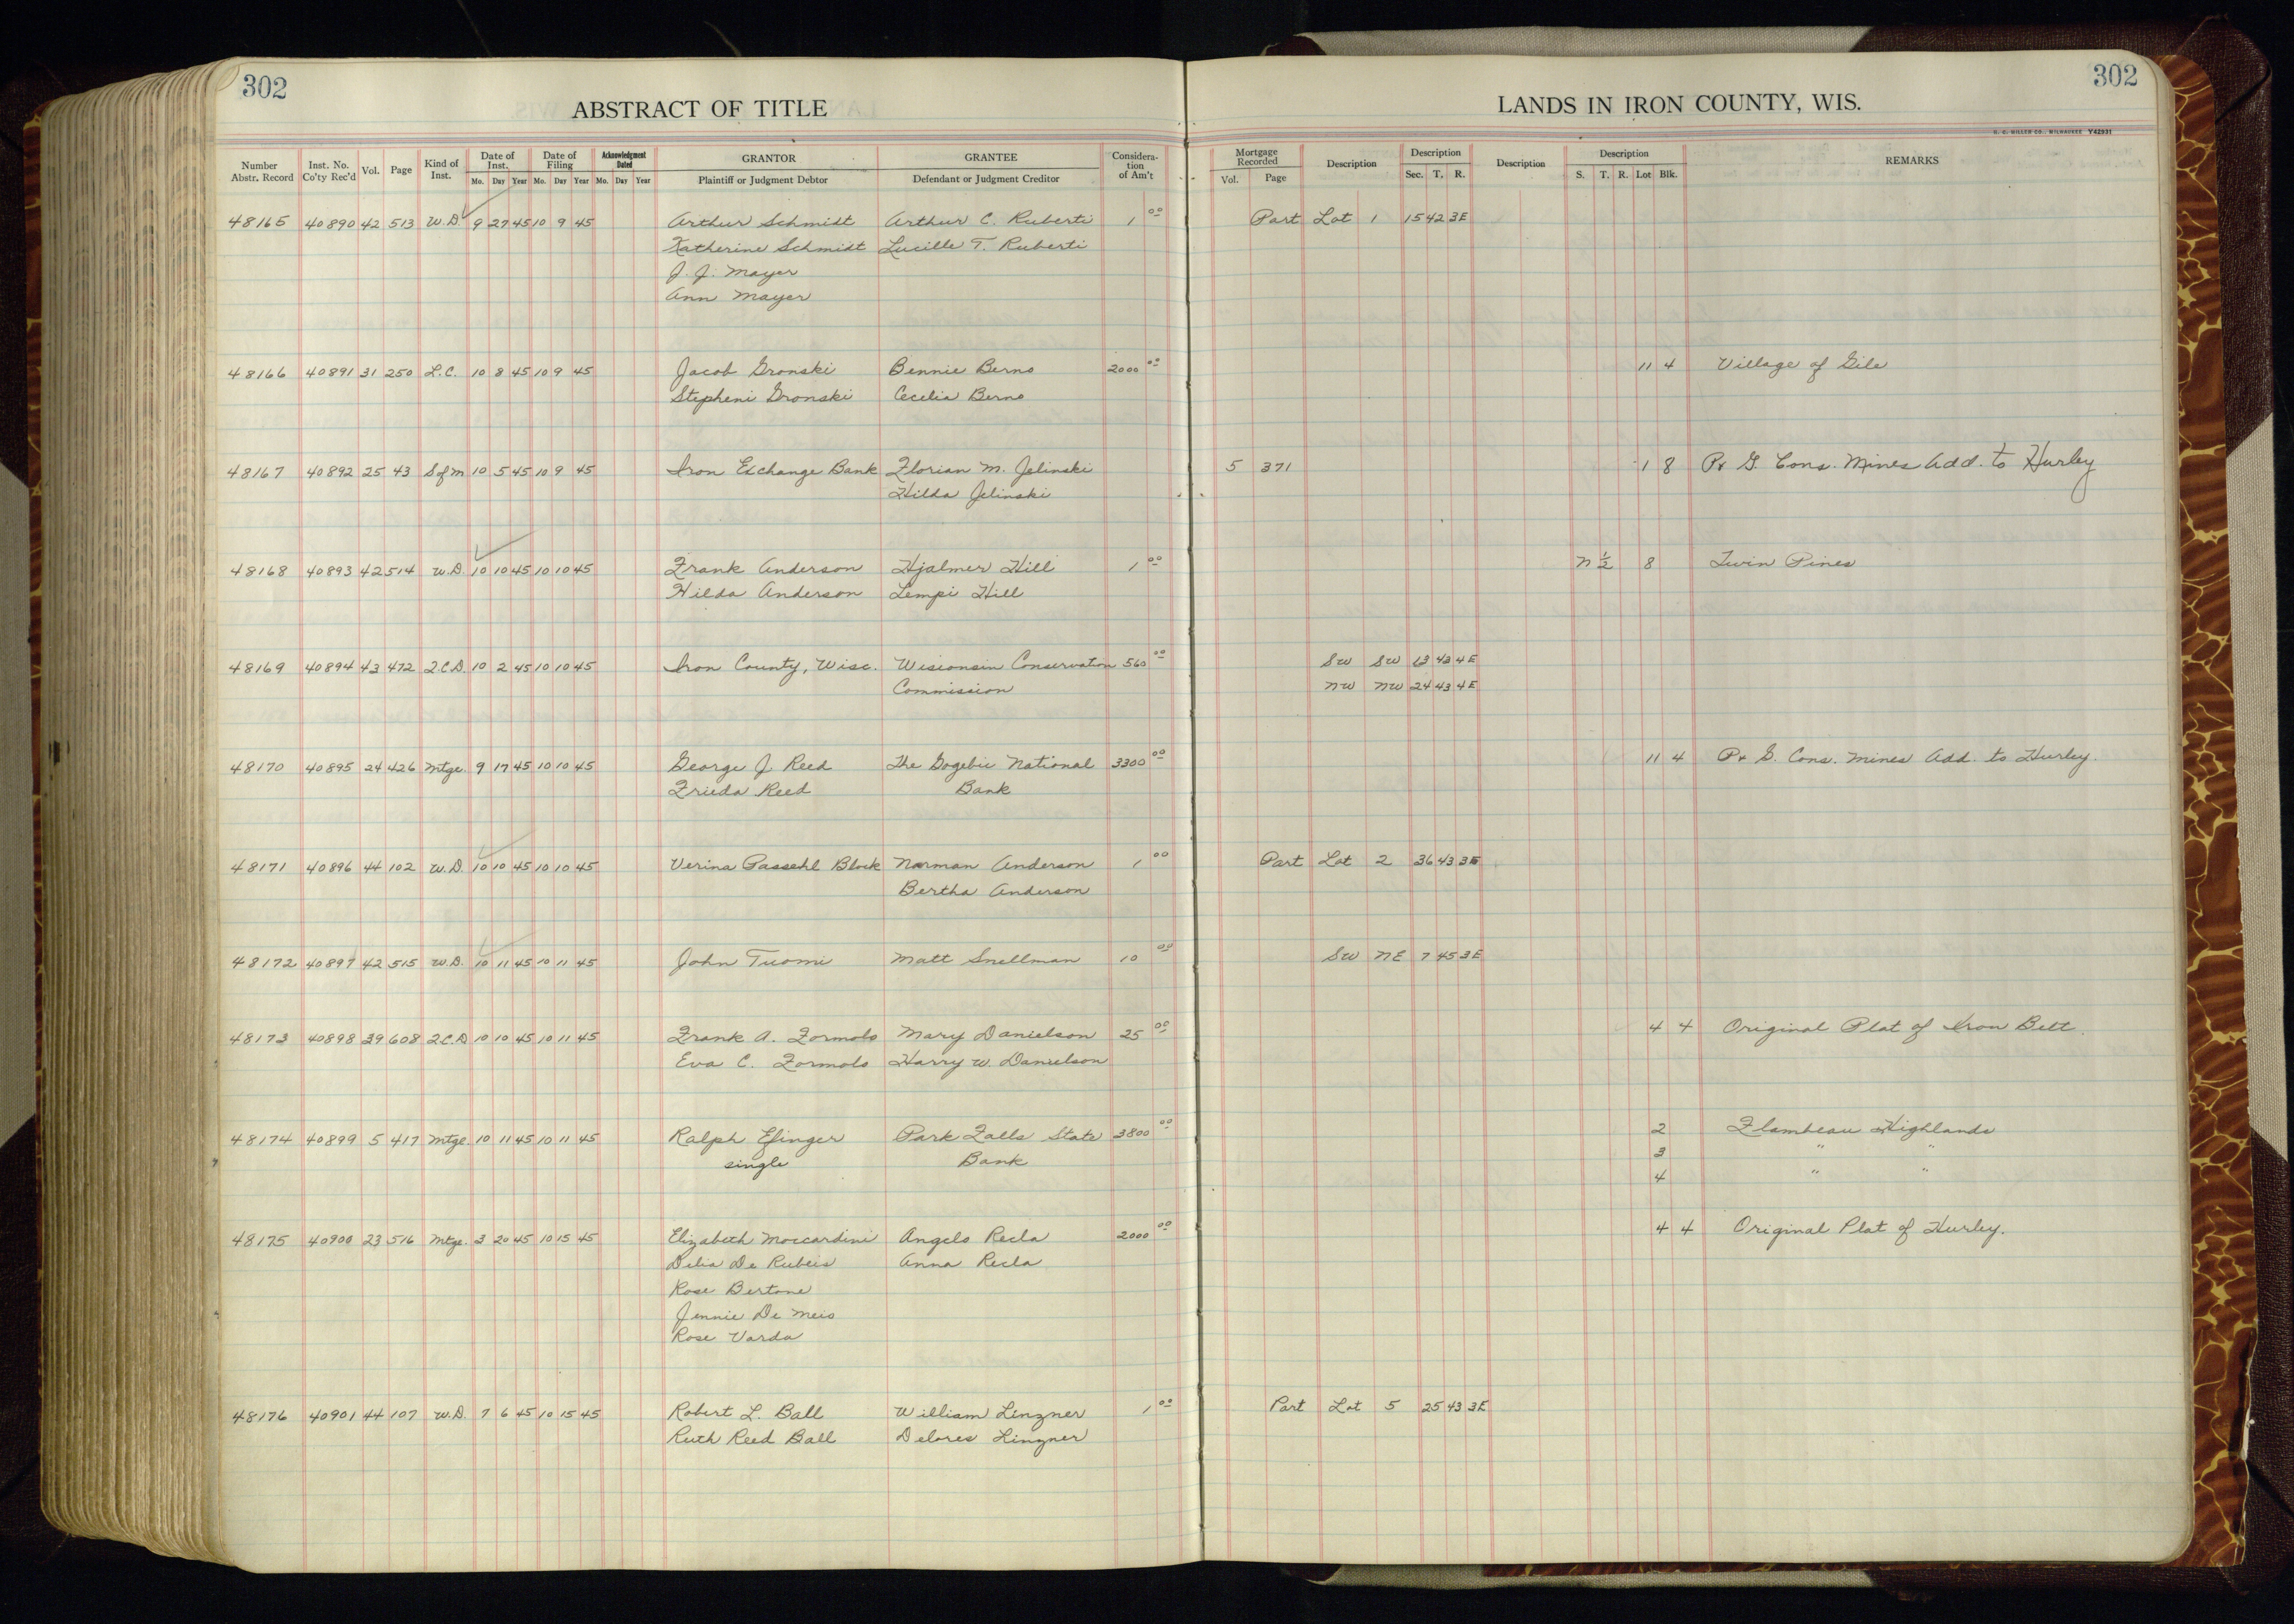 302
302
ABSTRACT OF TITLE
LANDS IN IRON COUNTY, WIS.
H. C. MILLER CO., MILWAUKEE Y42931
Number Abstr. Record Inst. No. Co'ty Rec'd Vol. Page Kind of Inst. Date of Inst. Mo. Day Year Date of Filing Mo. Day Year Acknowledgment Dated Mo. Day Year GRANTOR Plaintiff or Judgment Debtor GRANTEE Defendant or Judgment Creditor Considera-tion of Am't Mortgage Recorded Vol. Page Description Description Sec. T. R. Description Description S. T. R. Lot Blk. REMARKS
48165 40890 42 513 W.D. 9 27 45 10 9 45 Arthur Schmidt Arthur C. Ruberti 1 00 Part Lot 1 15 42 3E
Katherine Schmidt Lucille T. Ruberti
J. J. Mayer
Ann Mayer
48166 40891 31 250 L.C. 10 8 45 10 9 45 Jacob Gronski Bennie Berno 2000 00 11 4 Village of Gile
Stepheni Gronski Cecelia Berno
48167 40892 25 43 S of M 10 5 45 10 9 45 Iron Exchange Bank Florian M. Jelinski 5 371 1 8 P & G. Cons. Mines Add. to Hurley
Hilda Jelinski
48168 40893 42 514 W.D. 10 10 45 10 10 45 Frank Anderson Hjalmer Hill 1 00 N 1/2 8 Twin Pines
Hilda Anderson Lempi Hill
48169 40894 43 472 Q.C.D. 10 2 45 10 10 45 Iron County, Wisc. Wisconsin Conservation 560 00 SW SW 13 43 4E
Commission NW NW 24 43 4E
48170 40895 24 426 Mtge. 9 17 45 10 10 45 George J Reed The Gogebic National 3300 00 11 4 P & G. Cons. Mines Add. to Hurley.
Frieda Reed Bank
48171 40896 44 102 W.D. 10 10 45 10 10 45 Verina Passehl Block Norman Anderson 1 00 Part Lot 2 36 43 3E
Bertha Anderson
48172 40897 42 515 W.D. 10 11 45 10 11 45 John Tuomi Matt Snellman 10 00 SW NE 7 45 3E
48173 40898 39 608 Q.C.D 10 10 45 10 11 45 Frank A. Formolo Mary Danielson 25 00 4 4 Original Plat of Iron Belt.
Eva C. Formolo Harry W. Danielson
48174 40899 5 417 Mtge. 10 11 45 10 11 45 Ralph Efinger Park Falls State 3800 00 2 Flambeau Highlands
single Bank 3 " "
4 " "
48175 40900 23 516 Mtge. 3 20 45 10 15 45 Elizabeth Moccardini Angelo Recla 2000 00 4 4 Original Plat of Hurley.
Delia De Rubeis Anna Recla
Rose Bertone
Jennie De Meio
Rose Varda
48176 40901 44 107 W.D. 7 6 45 10 15 45 Robert L. Ball William Linzner 1 00 Part Lot 5 25 43 3E
Ruth Reed Ball Delores Linzner